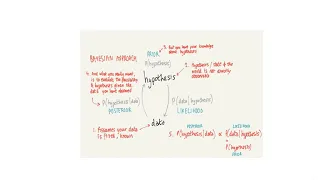 BAYESIAN APPROACH
PRIOR
P(hypothesis)
3. But you have your knowledge
about hypotheses
4. And what you really want,
is to evaluate the plausibility
of hypothesis given the
data you have observed
hypothesis
2. Hypothesis / state of the
world is not directly
observable
P(hypothesis|data)
POSTERIOR
P(data|hypothesis)
LIKELIHOOD
data
1. Assumes your data
is fixed, known
POSTERIOR
LIKELIHOOD
5. P(hypothesis|data) ∝ P(data|hypothesis)
P(hypothesis)
PRIOR